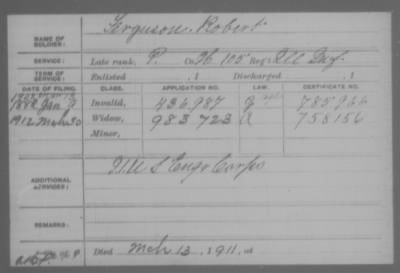 NAME OF SOLDIER: Ferguson, Robert
SERVICE: Late rank, P. Co. H. 105 Reg't Ill Inf.
TERM OF SERVICE: Enlisted , 1 Discharged , 1
DATE OF FILING. CLASS. APPLICATION NO. LAW. CERTIFICATE NO.
Jan Invalid, 436987 785966
1912 Mch 30 Widow, 983723 758156
Minor,
ADDITIONAL SERVICES: U S Engr Corps
REMARKS:
Died Mch 13, 1911, at